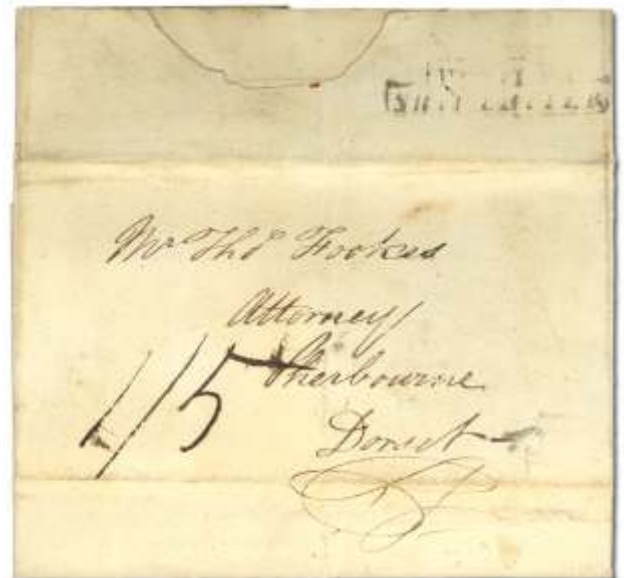 Mr Thos Fookes
Attorney
Sherbourne
1/5
Dorset